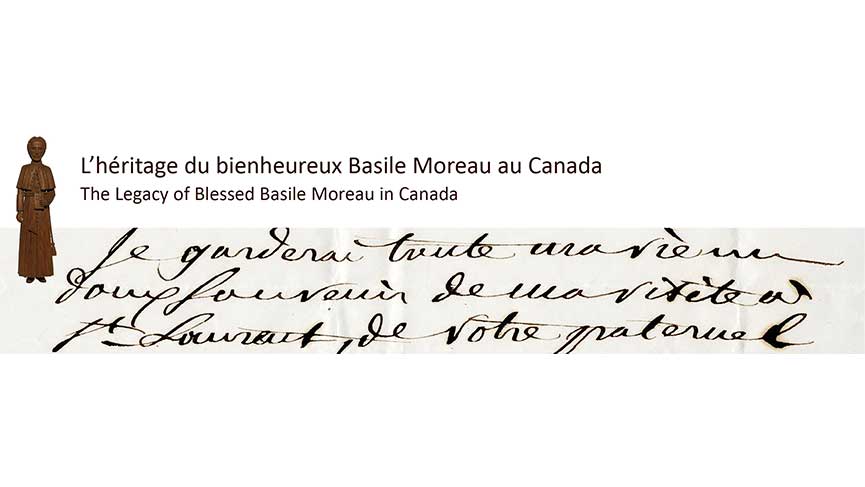 L'héritage du bienheureux Basile Moreau au Canada
The Legacy of Blessed Basile Moreau in Canada
Je garderai toute ma vie un
doux souvenir de ma visite à
St Laurent, de votre paternel